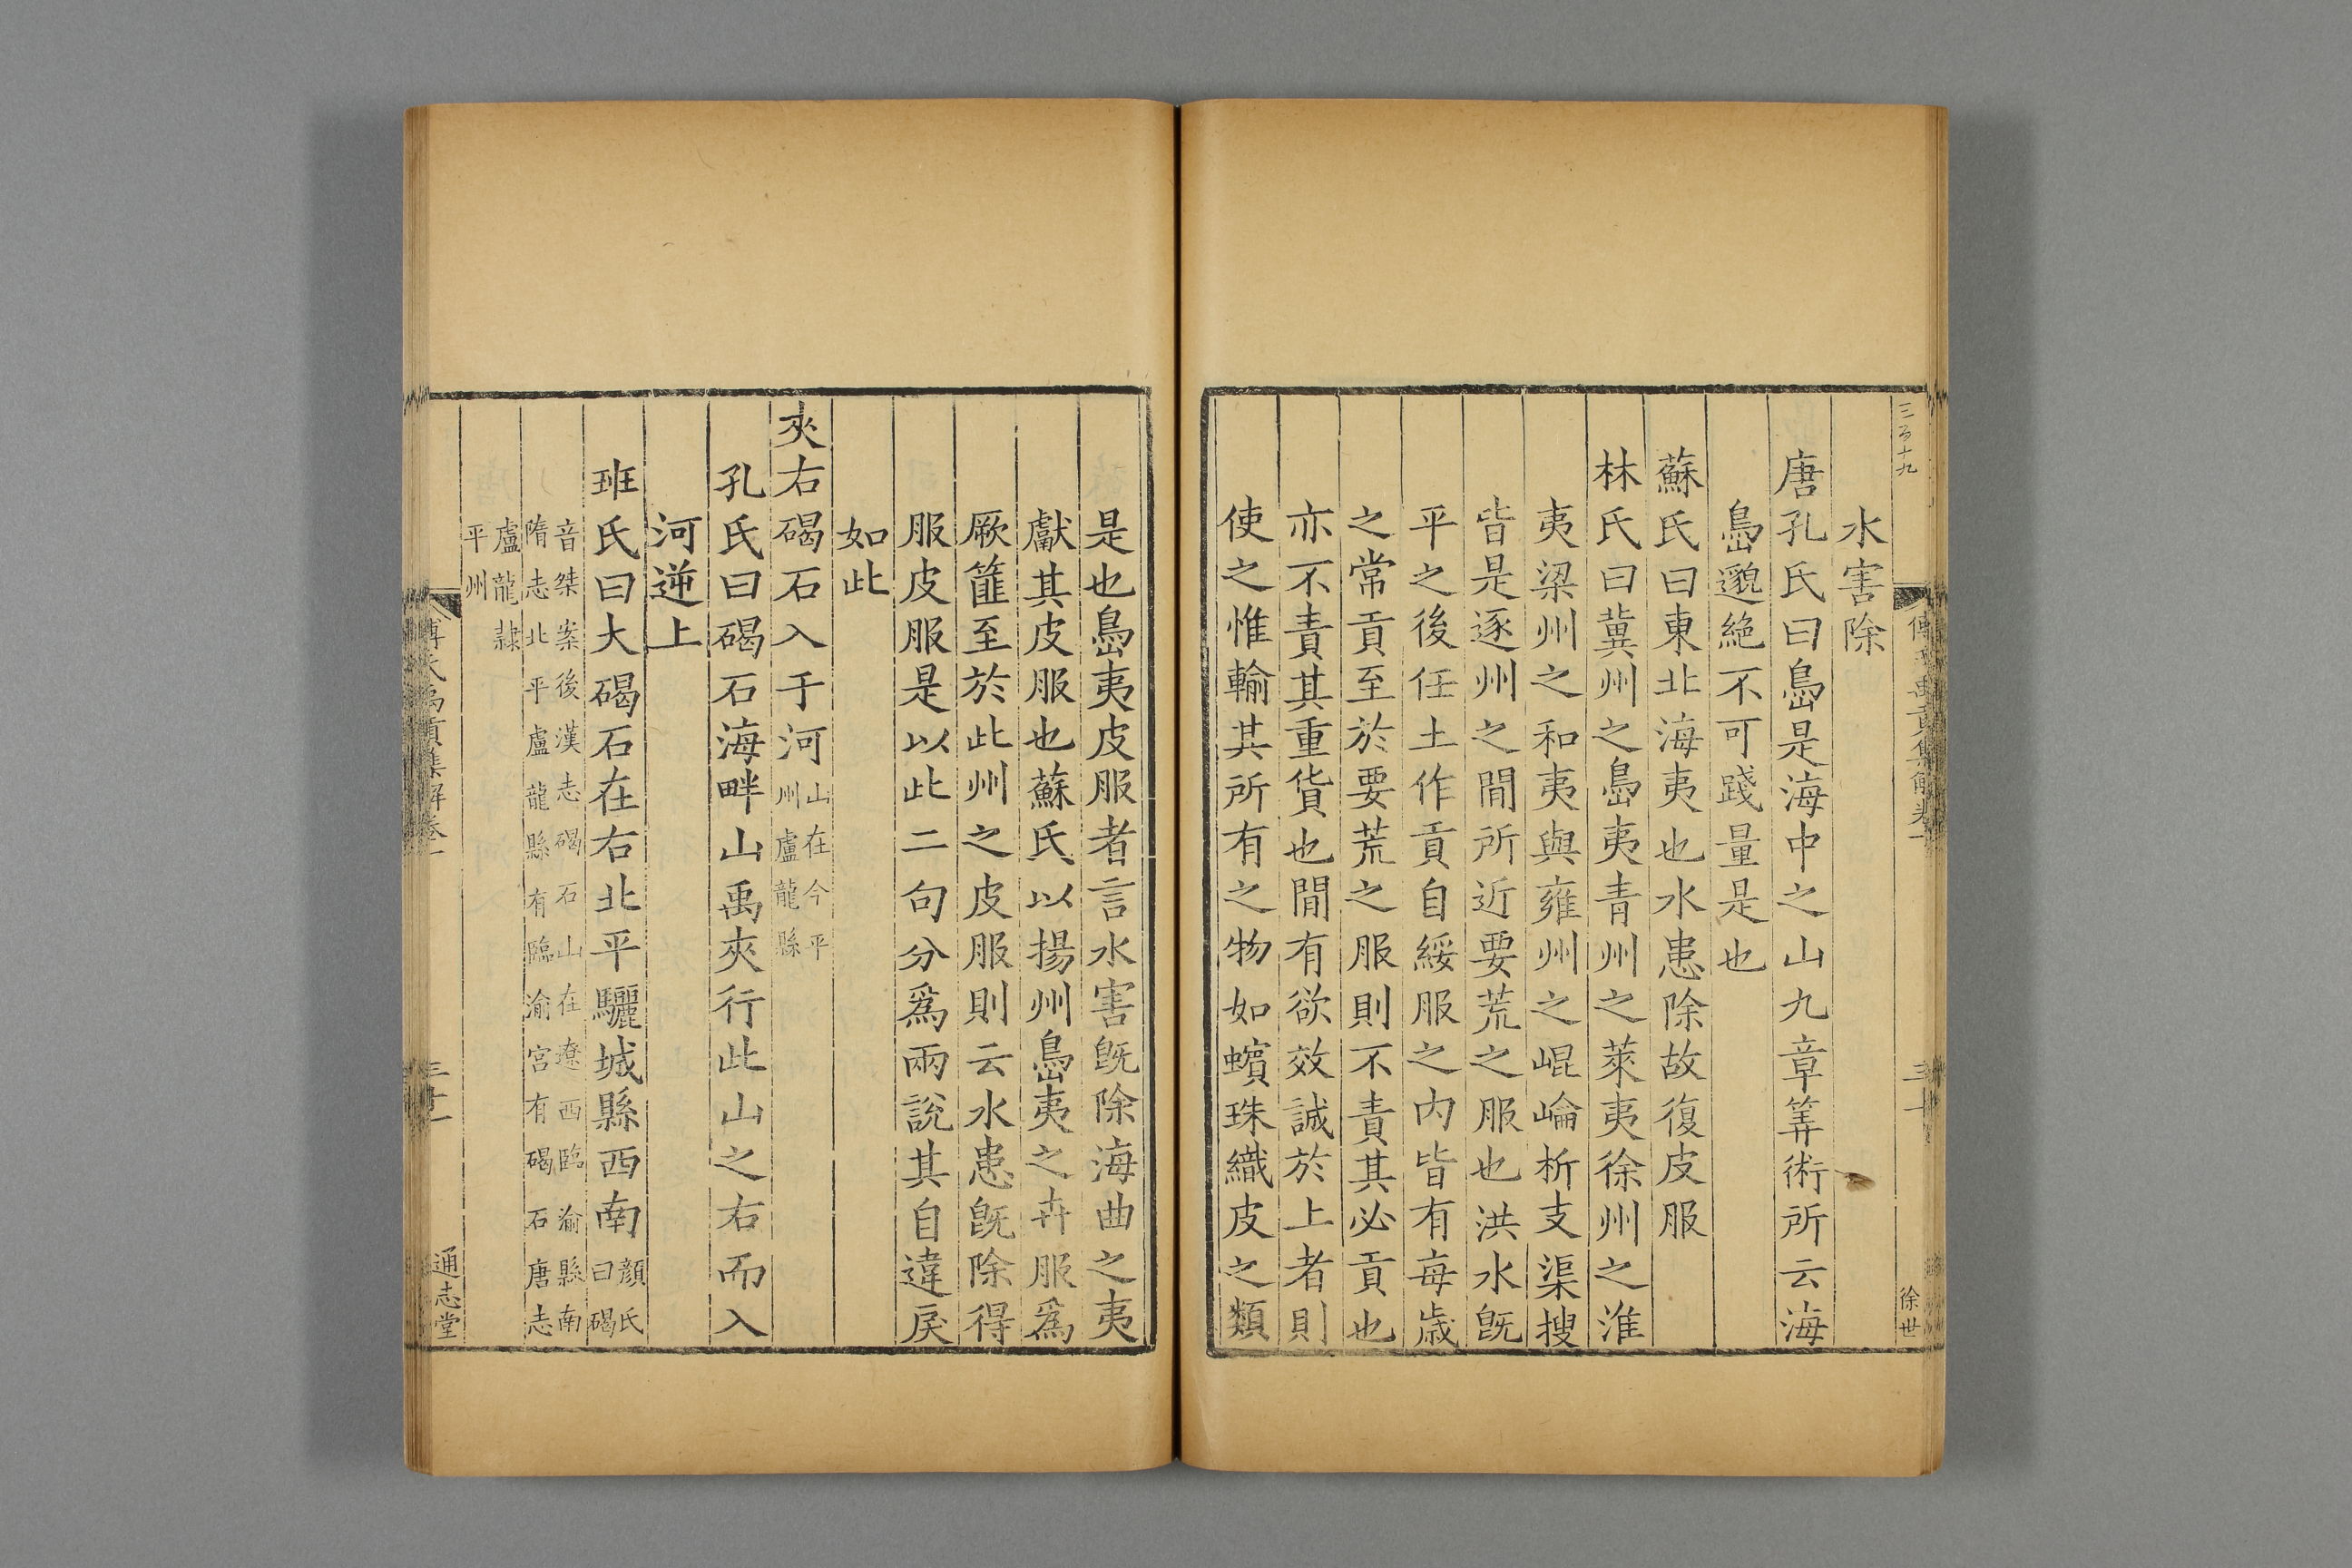 三百十九
傅氏禹貢集解卷一
三十
徐世
水害除
唐孔氏曰㠀是海中之山九章筭術所云海
㠀邈絶不可踐量是也
蘇氏曰東北海夷也水患除故復皮服
林氏曰冀州之㠀夷青州之萊夷徐州之淮
夷梁州之和夷與雍州之崐崘析支渠搜
皆是逐州之閒所近要荒之服也洪水旣
平之後任土作貢自綏服之内皆有每歳
之常貢至於要荒之服則不責其必貢也
亦不責其重貨也閒有欲效誠於上者則
使之惟輸其所有之物如蠙珠織皮之類
是也㠀夷皮服者言水害旣除海曲之夷
獻其皮服也蘇氏以揚州㠀夷之卉服爲
厥篚至於此州之皮服則云水患旣除得
服皮服是以此二句分爲兩說其自違戾
如此
夾右碣石入于河山在今平州盧龍縣
孔氏曰碣石海畔山禹夾行此山之右而入
河逆上
班氏曰大碣石在右北平驪城縣西南顔氏曰碣
音桀案後漢志碣石山在遼西臨渝縣南
隋志北平盧龍縣有臨渝宮有碣石唐志
盧龍隷
平州
傅氏禹貢集解卷一
三十一
通志堂